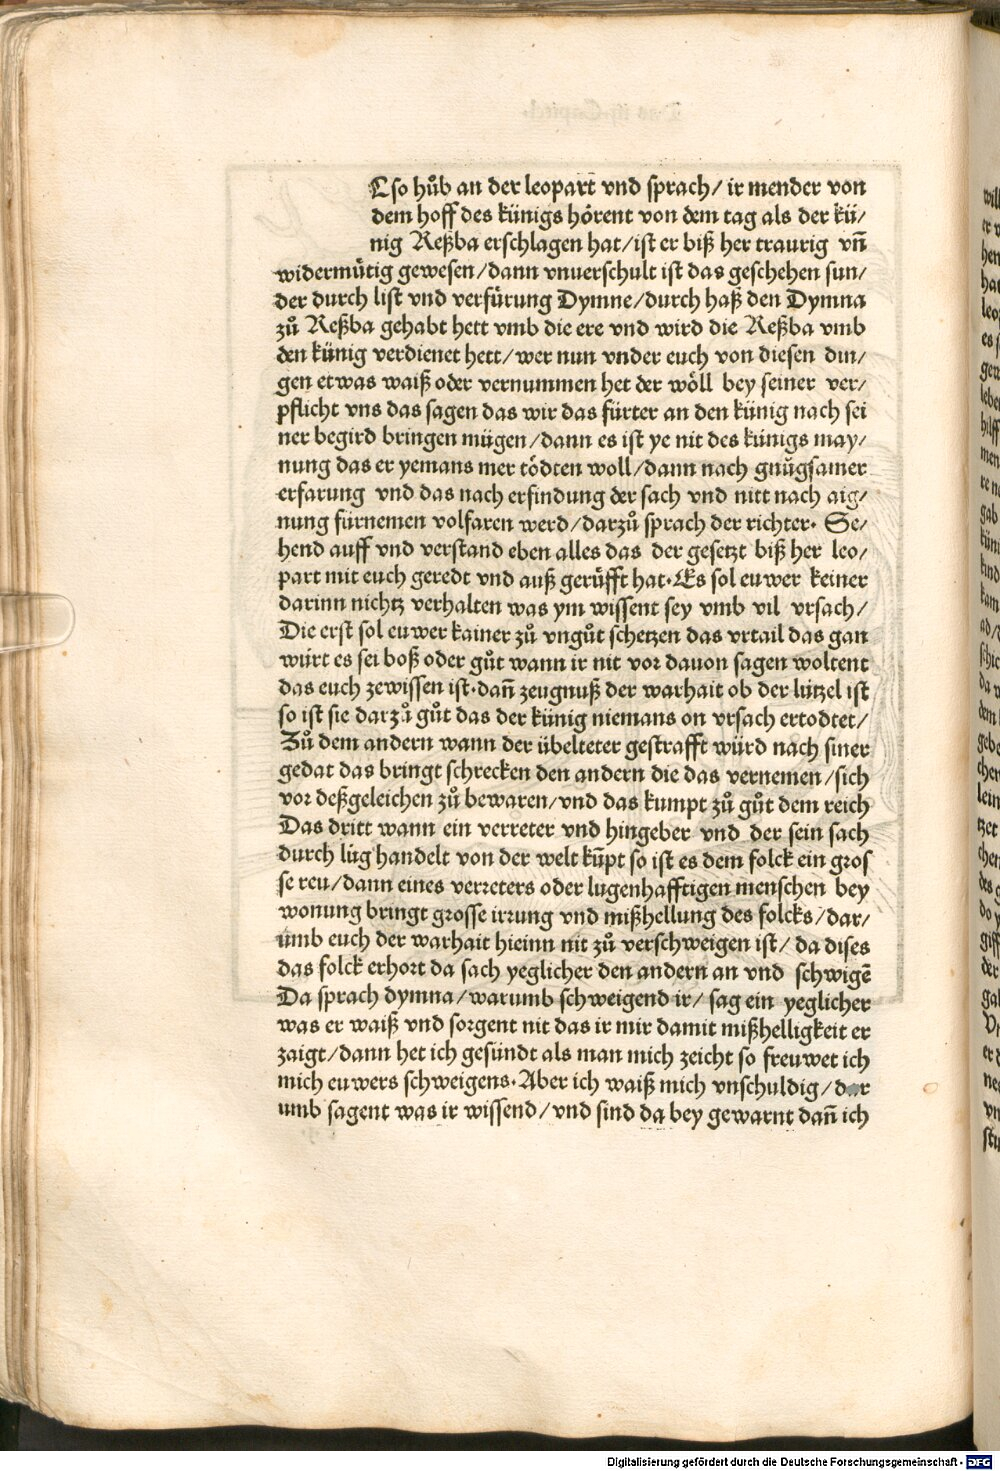 Lso hůb an der leopart vnd sprach/ ir mender von
dem hoff des künigs hörent von dem tag als der kü/
nig Reßba erschlagen hat/ist er biß her traurig vn̄
widermütig gewesen/dann vnuerschult ist das geschehen sun/
der durch list vnd verfürung Dymne/durch haß den Dymna
zů Reßba gehabt hett vmb die ere vnd wird die Reßba vmb
den künig verdienet hett/wer nun vnder euch von diesen din/
gen etwas waiß oder vernummen het der wöll bey seiner ver/
pflicht vns das sagen das wir das fürter an den künig nach sei
ner begird bringen mügen/dann es ist ye nit des künigs may/
nung das er yemans mer tödten woll/dann nach gnůgsamer
erfarung vnd das nach erfindung der sach vnd nitt nach aig/
nung fürnemen volfaren werd/darzů sprach der richter. Se/
hend auff vnd verstand eben alles das der gesetzt biß her leo/
part mit euch geredt vnd auß gerüfft hat.Es sol euwer keiner
darinn nichtz verhalten was ym wissent sey vmb vil vrsach/
Die erst sol euwer kainer zů vngůt schetzen das vrtail das gan
würt es sei boß oder gůt wann ir nit vor dauon sagen woltent
das euch zewissen ist.dan̄ zeugnuß der warhait ob der lützel ist
so ist sie darzů gůt das der künig niemans on vrsach ertodtet/
Zů dem andern wann der übelteter gestrafft würd nach siner
gedat das bringt schrecken den andern die das vernemen/sich
vor deßgeleichen zů bewaren/vnd das kumpt zů gůt dem reich
Das dritt wann ein verreter vnd hingeber vnd der sein sach
durch lüg handelt von der welt kūpt so ist es dem folck ein gros
se reu/dann eines verreters oder lugenhafftigen menschen bey
wonung bringt grosse irrung vnd mißhellung des folcks/dar/
umb euch der warhait hieinn nit zů verschweigen ist/ da dises
das folck erhort da sach yeglicher den andern an vnd schwigē
Da sprach dymna/warumb schweigend ir/ sag ein yeglicher
was er waiß vnd sorgent nit das ir mir damit mißhelligkeit er
zaigt/dann het ich gesündt als man mich zeicht so freuwet ich
mich euwers schweigens.Aber ich waiß mich vnschuldig/dar
umb sagent was ir wissend/vnd sind da bey gewarnt dan̄ ich
Digitalisierung gefördert durch die Deutsche Forschungsgemeinschaft - DFG